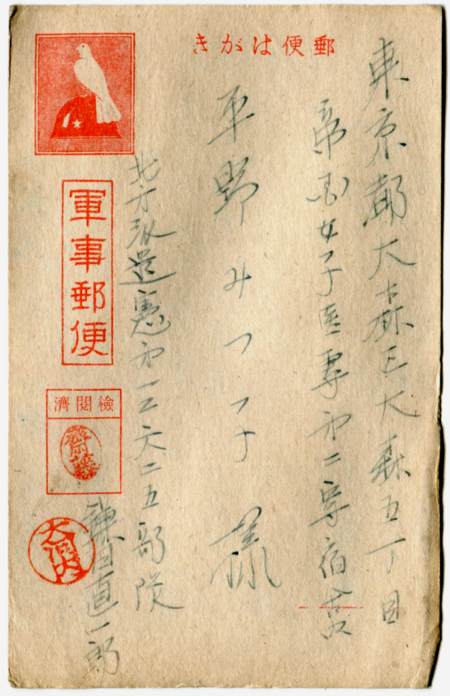 郵便はがき
東京都大森区大森五丁目
帝国女子医専第二寄宿舎
平野みつ子様
北方派遣憲第一二六二五部隊
鎌田直一郎
軍事郵便
檢閲濟
齋藤
大河内